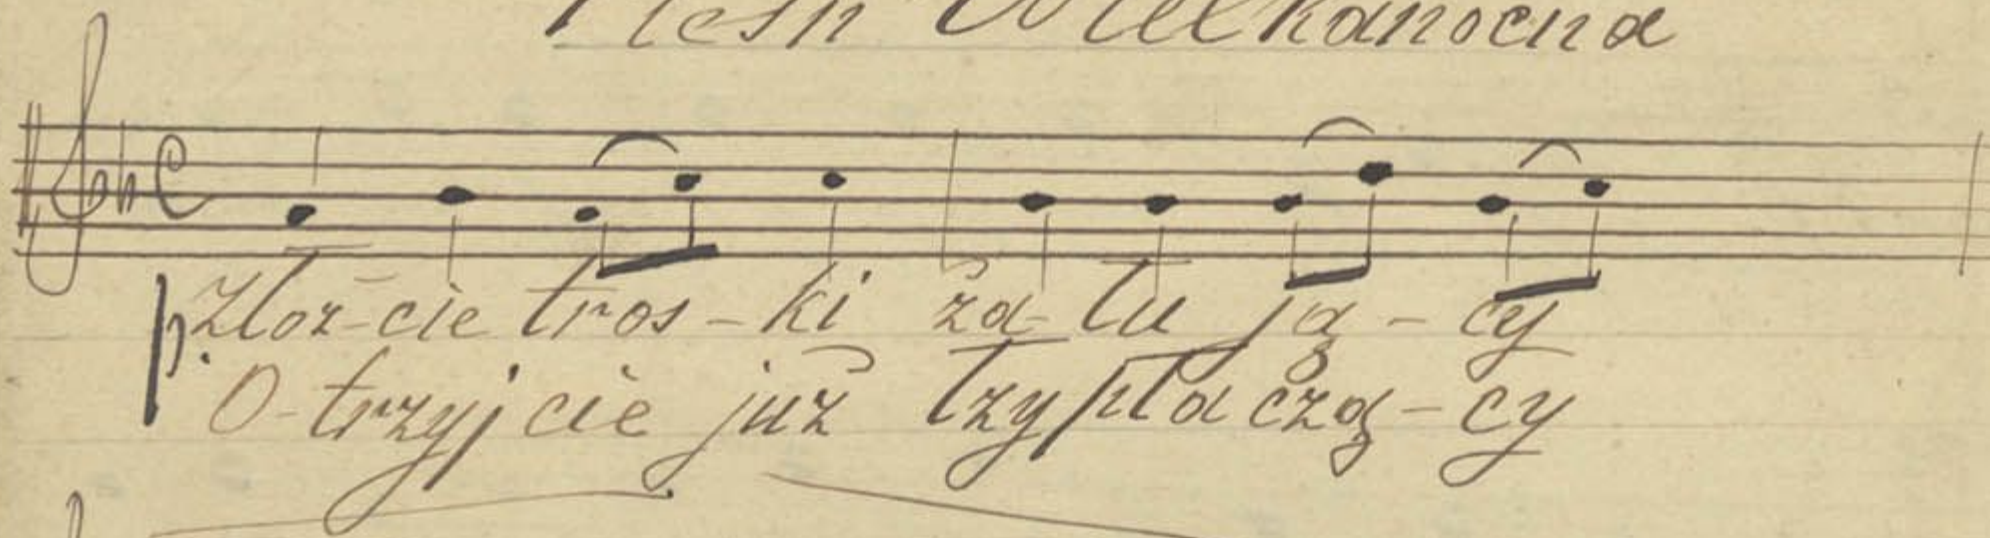 Pieśń Wielkanocna
p. Złoż-cie tros-ki ża-łu ją-cy
O-trzyjcie już łzy płaczą-cy